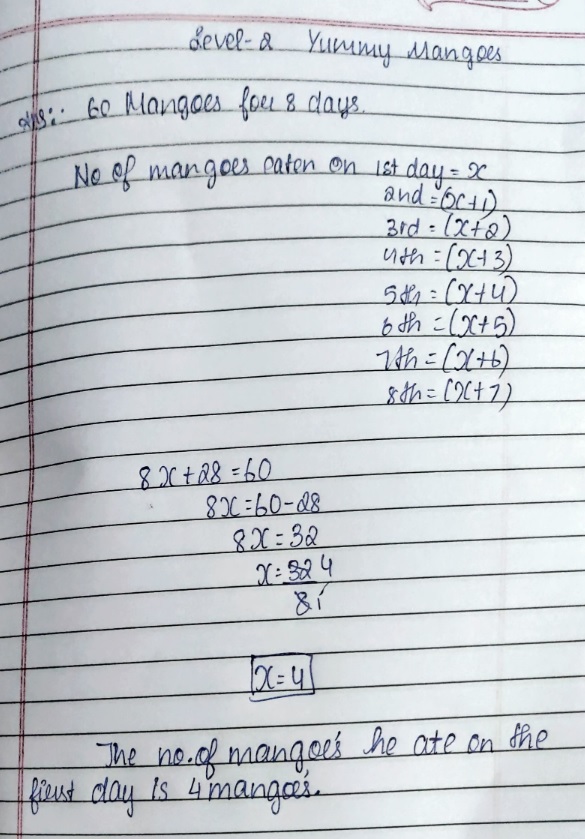 Level-2 Yummy Mangoes
Ans:- 60 Mangoes for 8 days.
No of mangoes eaten on 1st day = x
2nd = (x+1)
3rd = (x+2)
4th = (x+3)
5th = (x+4)
6th = (x+5)
7th = (x+6)
8th = (x+7)
8x+28=60
8x=60-28
8x=32
x=32 4
8 1
x=4
The no.of mangoe's he ate on the
first day is 4 mangoe's.